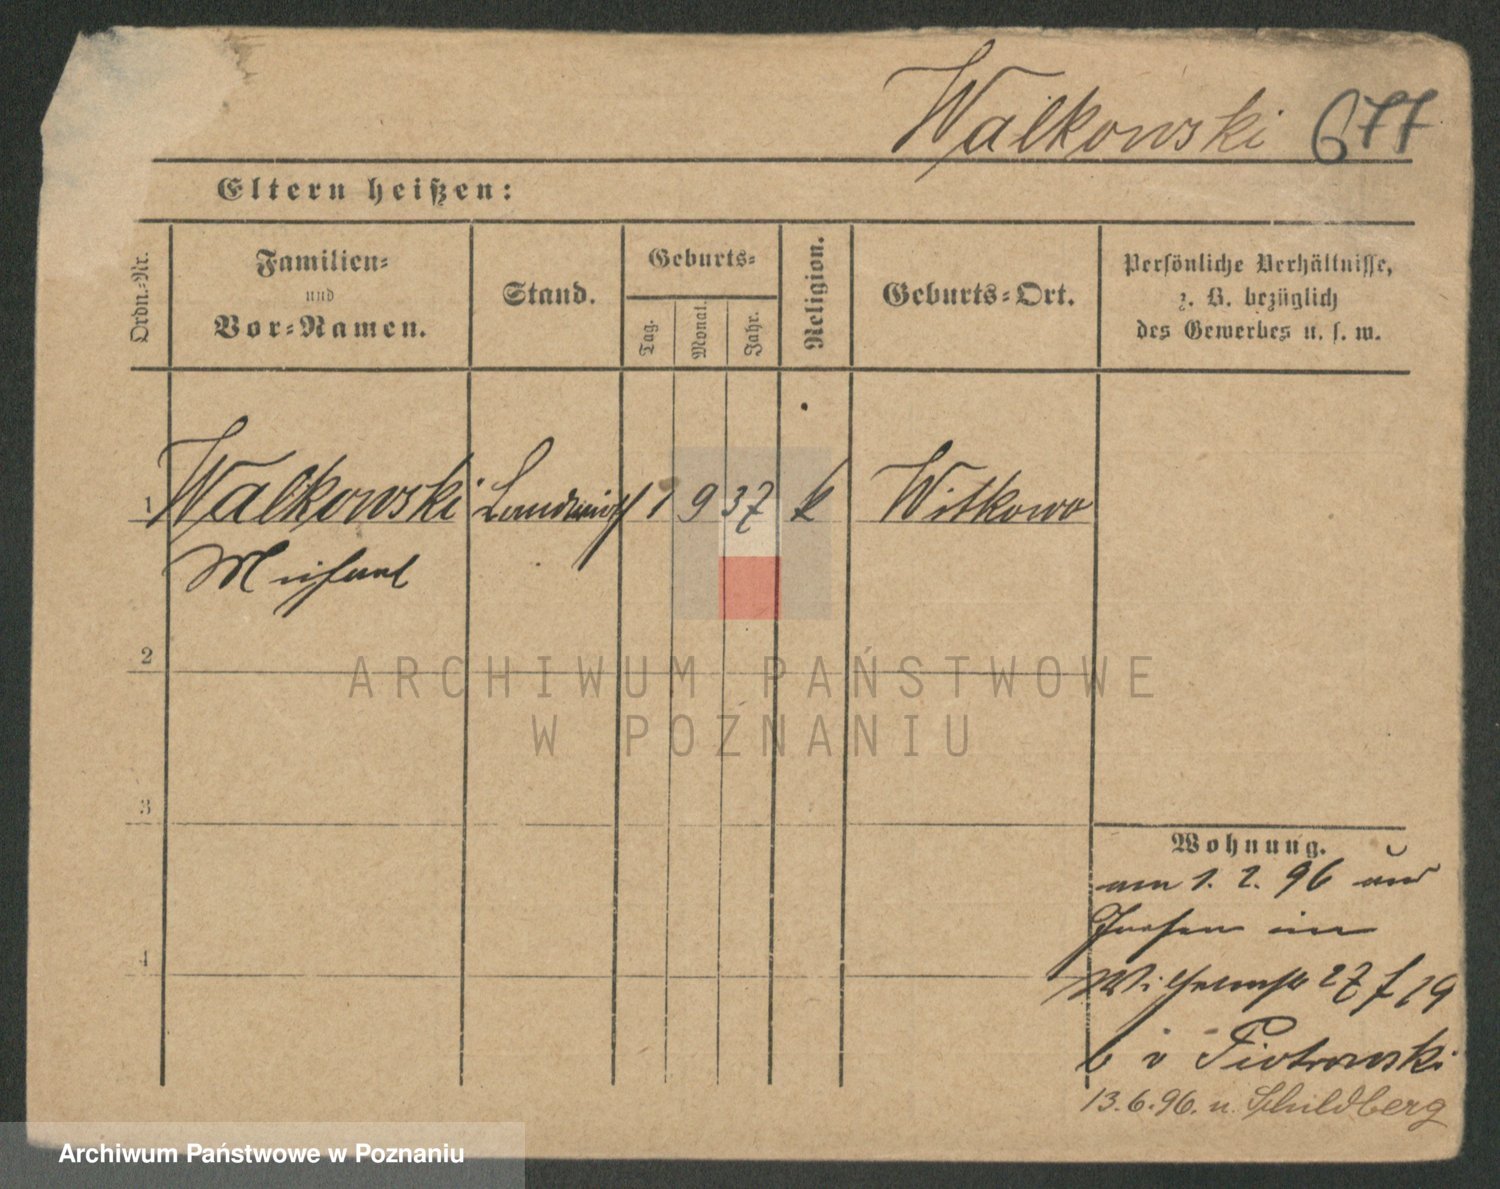 Walkowski 677
Eltern heißen:
Ordn.-Nr.
Familien-
und
Vor-Namen.
Stand.
Geburts-
Tag.
Monat.
Jahr.
Religion.
Geburts-Ort.
Persönliche Verhältnisse,
z. B. bezüglich
des Gewerbes u. s. w.
1 Walkowski Landwirth 1 9 37 k Witkowo
Michael
2
3
4
Wohnung.
am 1. 2. 96 aus
in
Wilhelmstr 27
b v Piotrowski
13.6.96. n. Schildberg
ARCHIWUM PAŃSTWOWE
W POZNANIU
Archiwum Państwowe w Poznaniu